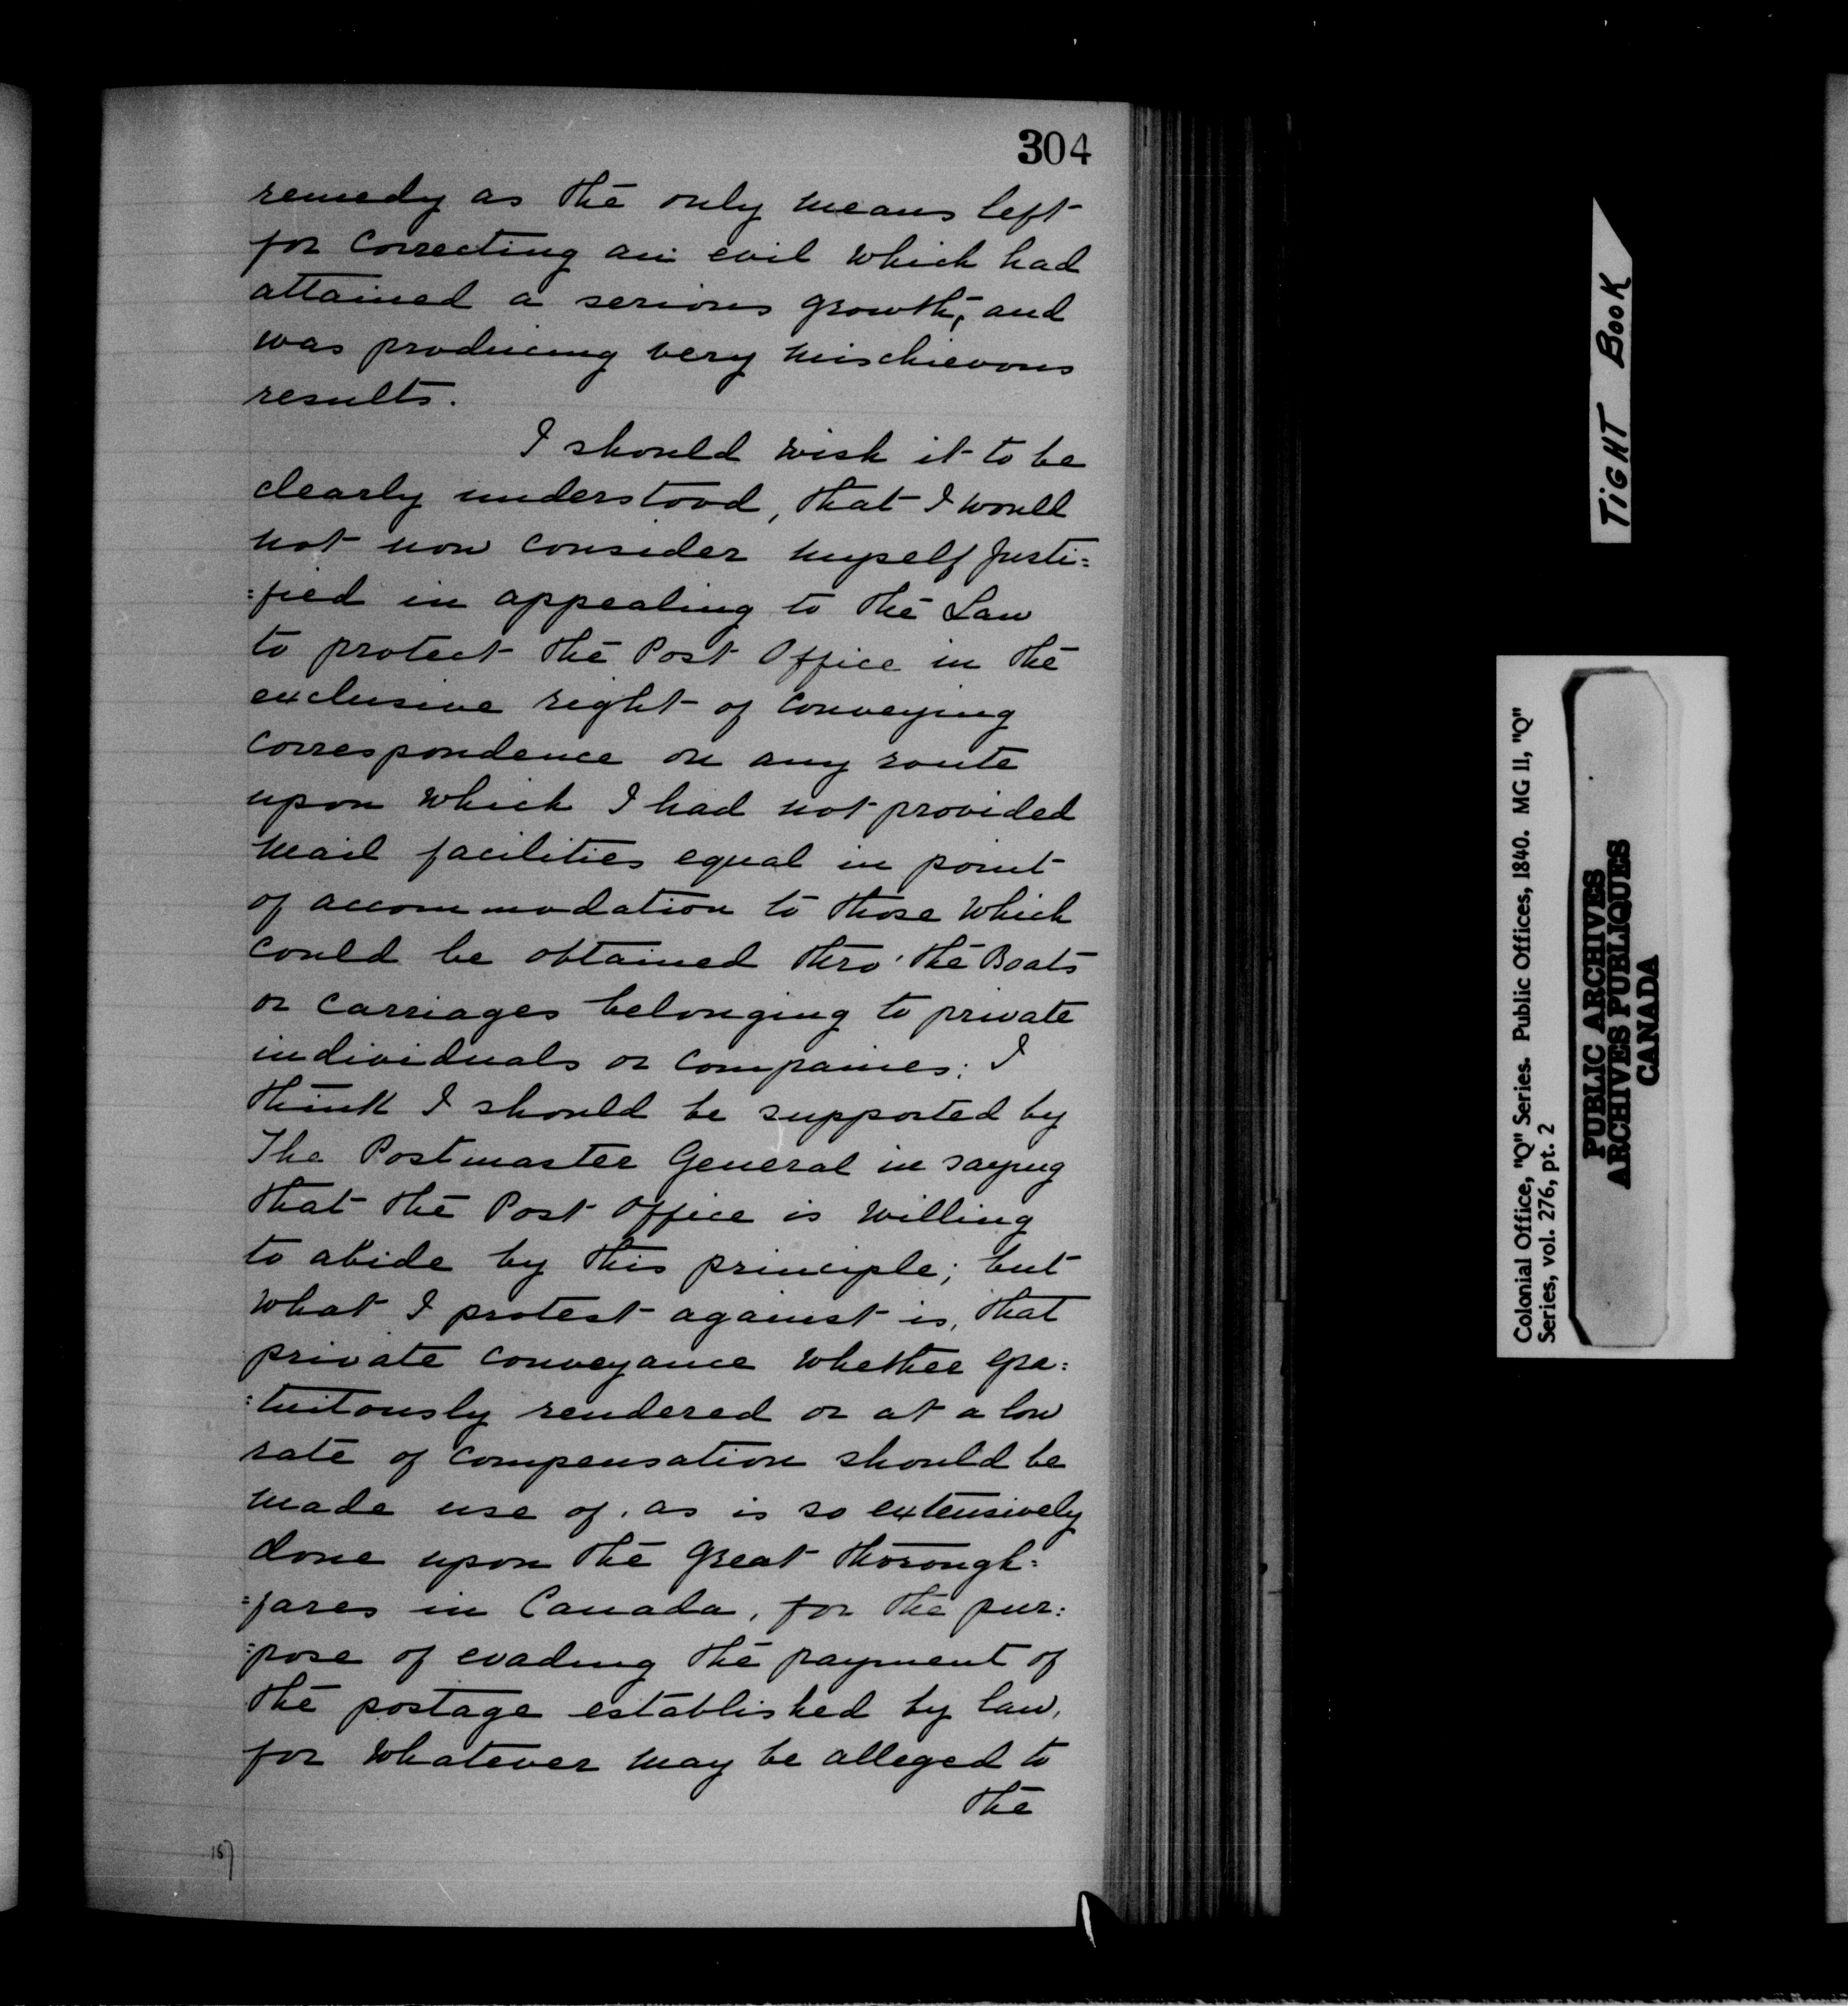 304
remedy as the only means left
for correcting an evil which had
attained a serious growth, and
was producing very mischievous
results.
I should wish it to be
clearly understood, that I would
not now consider myself justi=
=fied in appealing to the Law
to protect the Post Office in the
exclusive right of conveying
correspondence on any route
upon which I had not provided
mail facilities equal in point
of accommodation to those which
could be obtained thro' the Boats
or carriages belonging to private
individuals or companies: I
think I should be supported by
The Postmaster General in saying
that the Post Office is willing
to abide by this principle; but
what I protest against is, that
private conveyance whether gra=
=tuitously rendered or at a low
rate of compensation should be
made use of, as is so extensively
done upon the great thorough=
=fares in Canada, for the pur=
=pose of evading the payment of
the postage established by law,
for whatever may be alleged to
the
157
TIGHT BOOK
Colonial Office, "Q" Series. Public Offices, 1840. MG 11, "Q"
Series, vol. 276, pt. 2
PUBLIC ARCHIVES
ARCHIVES PUBLIQUES
CANADA